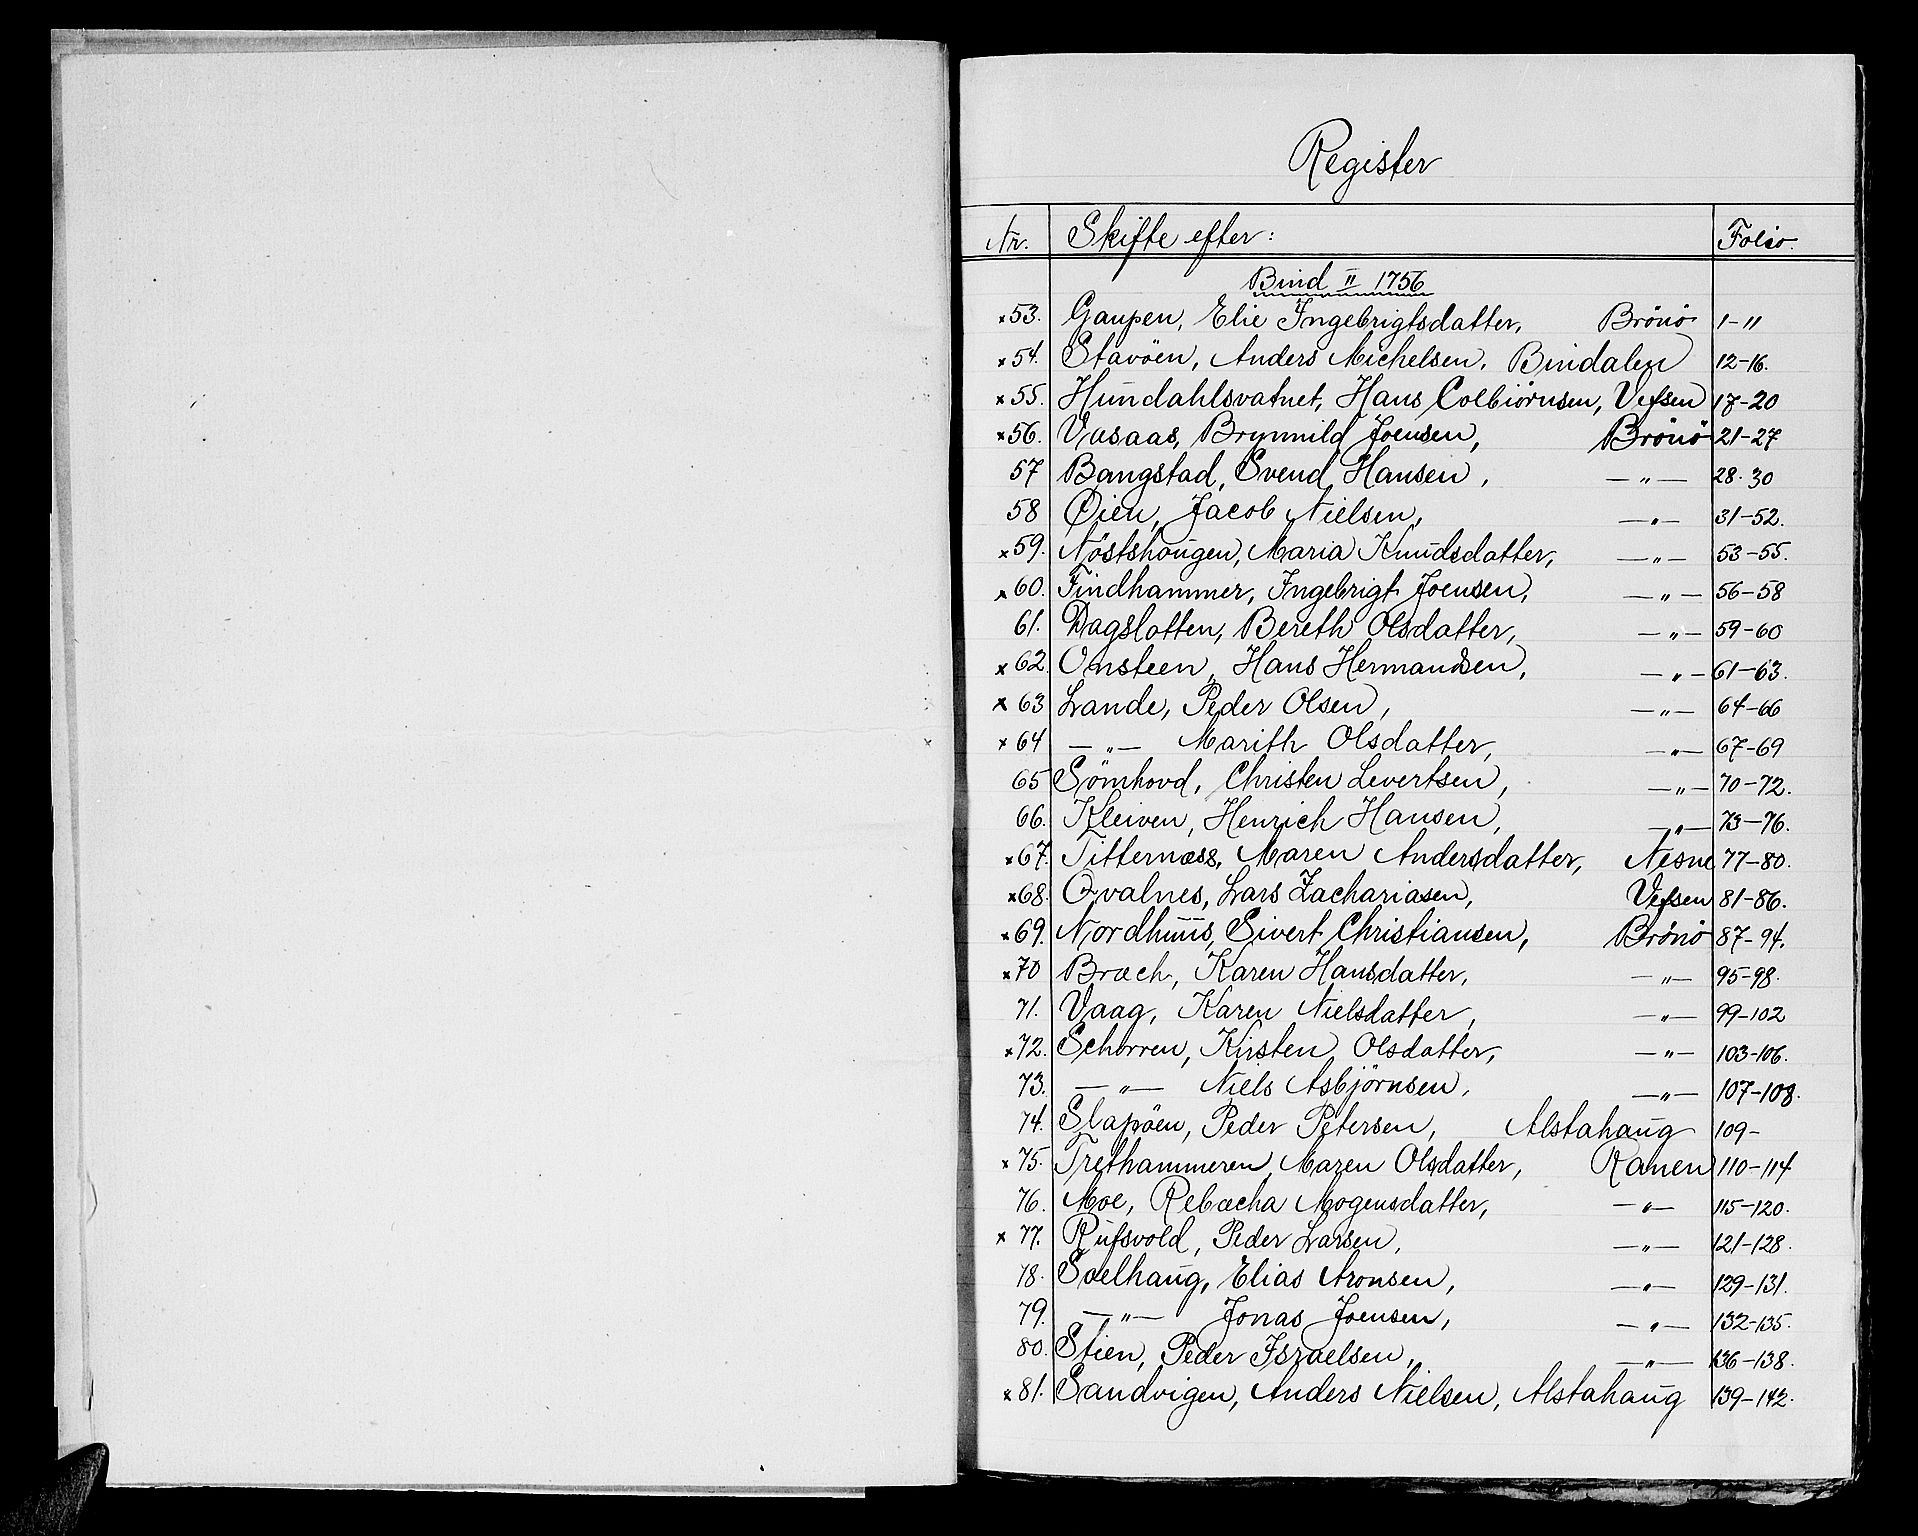 Register
Nr. Skifte efter: Folio.
Bind II 1756
×53. Gaupen, Elie Ingebrigtsdatter, Brönö 1-11
×54. Stavöen, Anders Michelsen. Bindalen 12-16.
×55. Hundahlsvatnet, Hans Colbiörnsen, Vefsen 17-20
×56. Vasaas, Brynnild Joensen, Brönö 21-27
57 Bangstad, Svend Hansen, —"— 28.30
58 Öien, Jacob Nielsen, —"— 31-52.
×59. Nöstshougen, Maria Knudsdatter, —"— 53-55.
×60. Findhammer, Ingebrigt Joensen, —"— 56-58
61. Dagslotten, Bereth Olsdatter, —"— 59-60
×62 Omsteen, Hans Hermandsen, —"— 61-63.
×63 Lande, Peder Olsen, —"— 64-66
×64 —"— Marith Olsdatter, —"— 67-69
65 Sömhovd, Christen Levertsen, —"— 70-72.
66. Kleiven, Henrich Hansen, —"— 73-76.
×67. Titternæss, Maren Andersdatter, Nesne 77-80.
×68. Qvalnes, Lars Zachariasen, Vefsen 81-86.
×69. Nordhuus, Sivert Christiansen, Brönö 87-94.
×70 Bræch, Karen Hansdatter, —"— 95-98.
71. Vaag, Karen Nielsdatter, —"— 99-102
×72. Schorren, Kirsten Olsdatter, —"— 103-106.
73. —"— Niels Asbjörnsen, —"— 107-108.
74. Slapöen, Peder Petersen, Alstahaug 109-
×75. Trethammeren, Maren Olsdatter, Ranen 110-114
76. Moe, Rebæcha Mogensdatter, —"— 115-120.
×77. Rufsvold, Peder Larsen, —"— 121-128.
78. Soelhaug, Elias Aronsen, —"— 129-131.
79. —"— Jonas Joensen, —"— 132-135.
80. Stien, Peder Israelsen, —"— 136-138.
×81. Sandvigen, Anders Nielsen, Alstahaug 139-142.